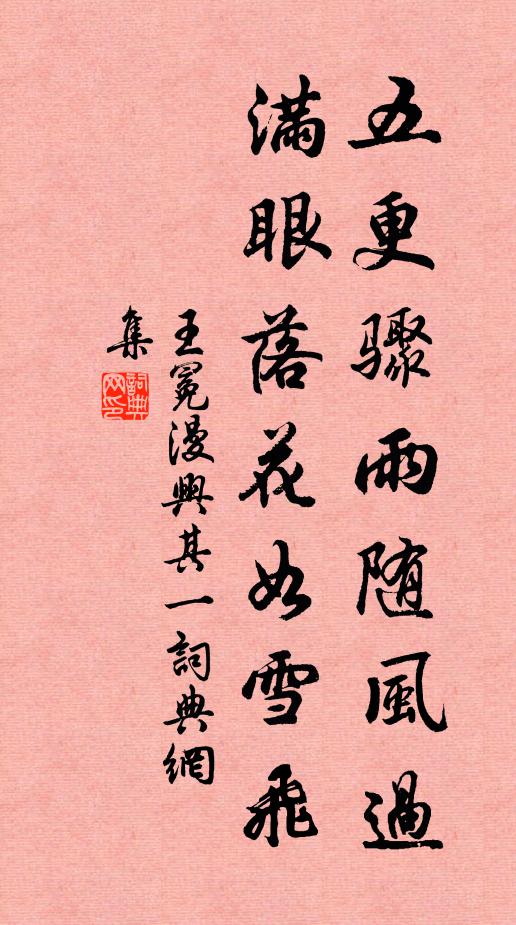 五更驟雨随風過
滿眼落花如雪飛
王冕漫興其一詞典網
集
詞典
网印